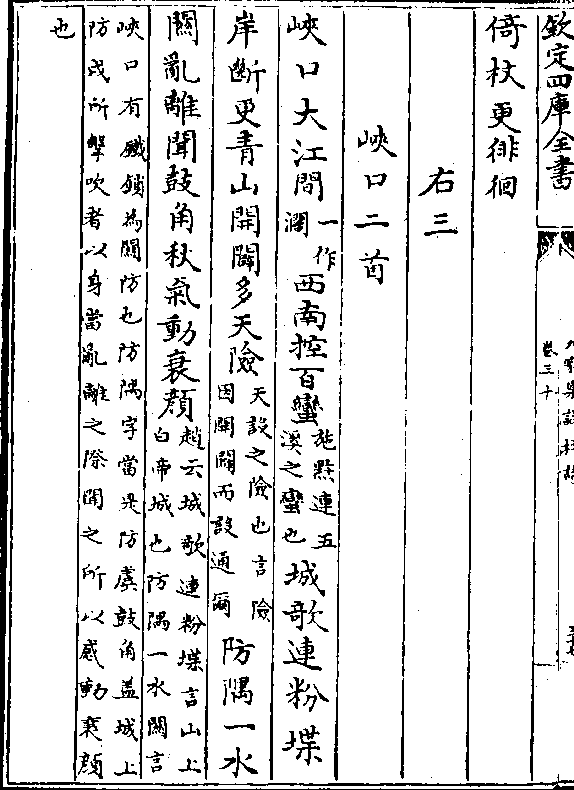 欽定四庫全書
卷三十
倚杖更徘徊
右三
峽口二首
峽口大江間一作濶西南控百蠻施黔連五溪之蠻也城歌連粉堞
岸斷更青山開闢多天險天設之險也言險因開闢而設通爾防隅一水
關亂離聞鼓角秋氣動衰顔趙云城歌連粉堞言山上白帝城也防隅一水關言
峽口有鐵鎖為關防也防隅字當是防虞鼓角蓋城上
防戍所擊吹者以身當亂離之際聞之所以感動衰顔
也